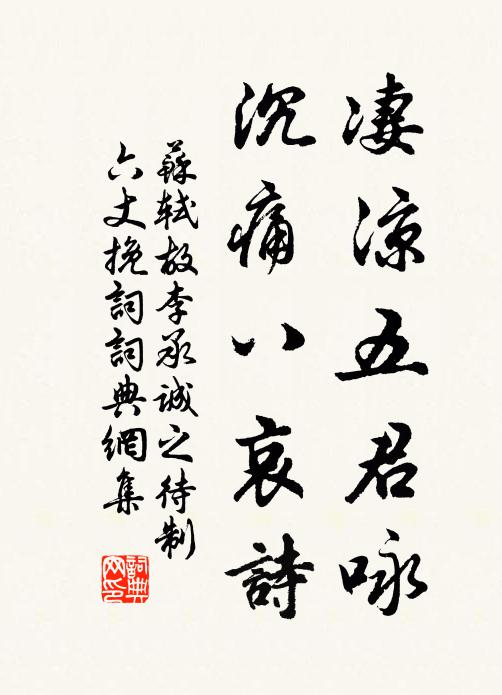 凄涼五君咏
沉痛八哀詩
蘇軾故李承誠之待制
六丈挽詞詞典網集
詞典
网印